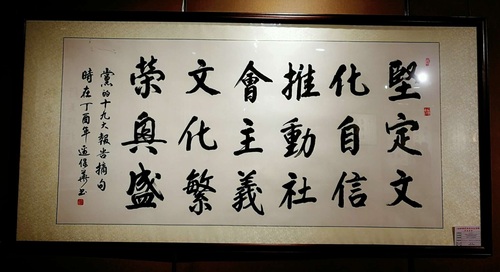 堅定文
化自信
推動社
會主義
文化繁
榮興盛
黨的十九大報告摘句
時在丁酉年書